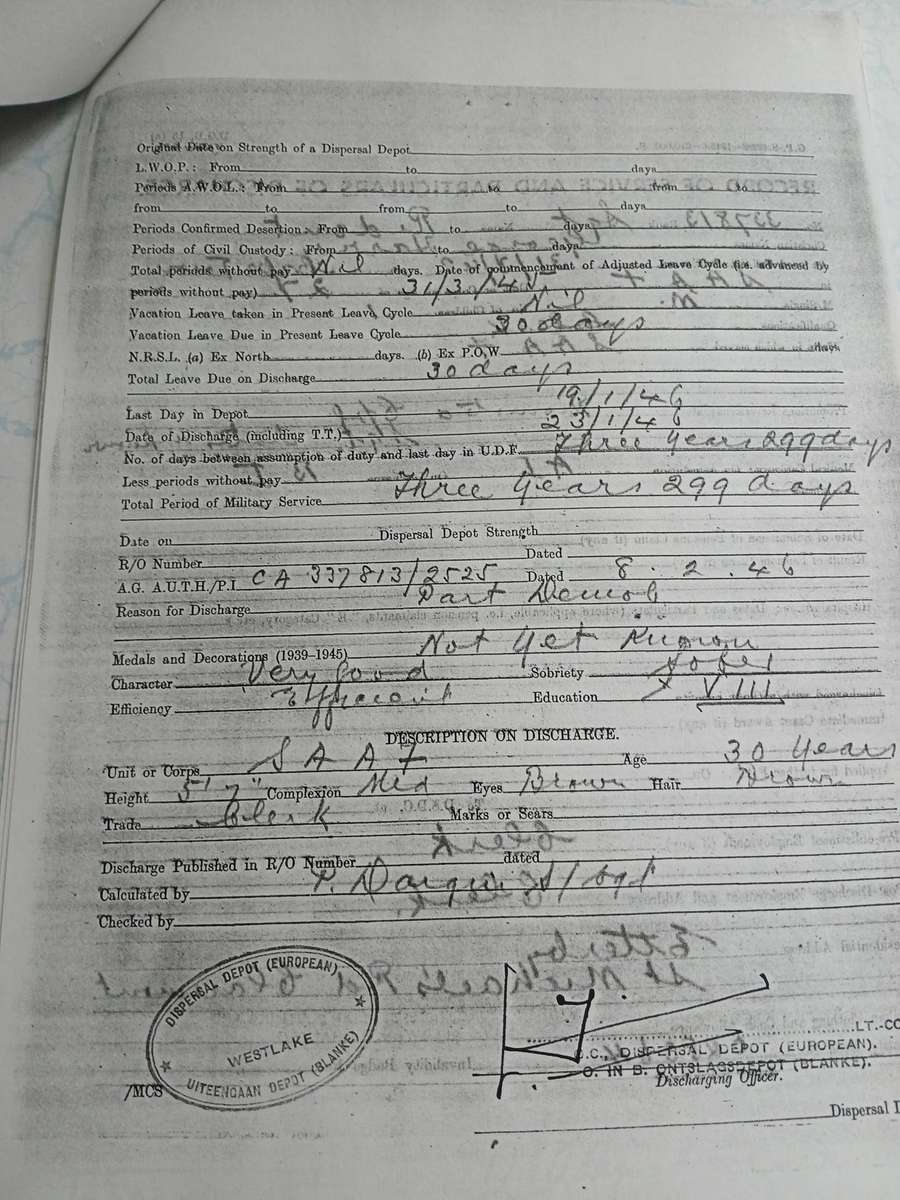 Original Date on Strength of a Dispersal Depot
L.W.O.P.: From to days
Periods A.W.O.L.: From to from to
from to from to days
Periods Confirmed Desertion: From to days
Periods of Civil Custody: From to days
Total periods without pay Nil days. Date of commencement of Adjusted Leave Cycle (i.e. advanced by
periods without pay) 31/3/4
Vacation Leave taken in Present Leave Cycle Nil
Vacation Leave Due in Present Leave Cycle 30 days
N.R.S.L. (a) Ex North days. (b) Ex P.O.W. days
Total Leave Due on Discharge 30 days
Last Day in Depot 19/1/46
Date of Discharge (including T.T.) 23/1/46
No. of days between assumption of duty and last day in U.D.F. Three years 299 days
Less periods without pay
Total Period of Military Service Three years 299 days
Date on Dispersal Depot Strength
R/O Number Dated
A.G. AUTH./P.I. CA 337813/2525 Dated 8.2.46
Reason for Discharge Part Demob
Medals and Decorations (1939-1945) Not Yet Known
Character Very Good Sobriety Sober
Efficiency Efficient Education VIII
DESCRIPTION ON DISCHARGE.
Unit or Corps S A A F Age 30 Years
Height 5'7" Complexion Med Eyes Brown Hair Brown
Trade Clerk Marks or Scars
Discharge Published in R/O Number dated
Calculated by S/Sgt
Checked by
DISPERSAL DEPOT (EUROPEAN)
WESTLAKE
UITEENGAAN DEPOT (BLANKE)
LT.-CO
O.C., DISPERSAL DEPOT (EUROPEAN).
O. IN B. ONTSLAGSDEPOT (BLANKE).
Discharging Officer.
/MCS
Dispersal D